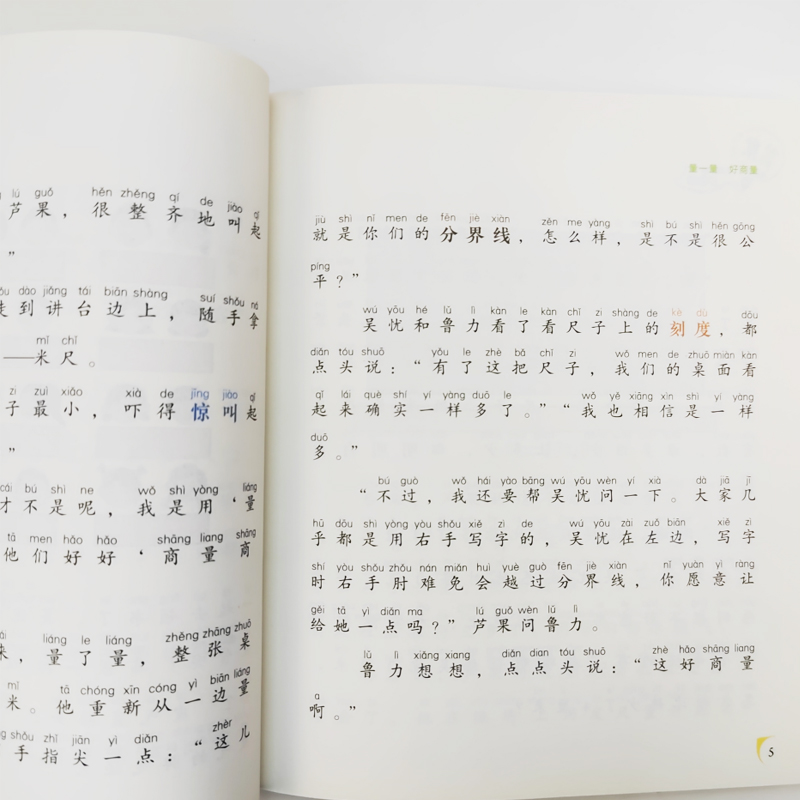 lú guǒ hěn zhěng qí de jiào qǐ
芦果，很整齐地叫起
”
dào jiǎng tái biān shàng suí shǒu ná
到讲台边上，随手拿
mǐ chǐ
——米尺。
zi zuì xiǎo xià de jīng jiào qǐ
子最小，吓得惊叫起
”
cái bú shì ne wǒ shì yòng liáng
才不是呢，我是用‘量
tā men hǎo hǎo shāng liang shāng
他们好好‘商量商
liáng le liáng zhěng zhāng zhuō
来，量了量，整张桌
mǐ tā chóng xīn cóng yì biān liáng
米。他重新从一边量
shǒu zhǐ jiān yì diǎn zhèr
手指尖一点：“这儿
量一量 好商量
jiù shì nǐ men de fēn jiè xiàn zěn me yàng shì bú shì hěn gōng
就是你们的分界线，怎么样，是不是很公
píng
平？”
wú yōu hé lǔ lì kàn le kàn chǐ zi shàng de kè dù dōu
吴忧和鲁力看了看尺子上的刻度，都
diǎn tóu shuō yǒu le zhè bǎ chǐ zi wǒ men de zhuō miàn kàn
点头说：“有了这把尺子，我们的桌面看
qǐ lái què shí yí yàng duō le wǒ yě xiāng xìn shì yí yàng
起来确实一样多了。”“我也相信是一样
duō
多。”
bú guò wǒ hái yào bāng wú yōu wèn yí xià dà jiā jī
“不过，我还要帮吴忧问一下。大家几
hū dōu shì yòng yòu shǒu xiě zì de wú yōu zài zuǒ biān xiě zì
乎都是用右手写字的，吴忧在左边，写字
shí yòu shǒu zhǒu nán miǎn huì yuè guò fēn jiè xiàn nǐ yuàn yì ràng
时右手肘难免会越过分界线，你愿意让
gěi tā yì diǎn ma lú guǒ wèn lǔ lì
给她一点吗？”芦果问鲁力。
lǔ lì xiǎng xiang diǎn dian tóu shuō zhè hǎo shāng liang
鲁力想想，点点头说：“这好商量
a
啊。”
5